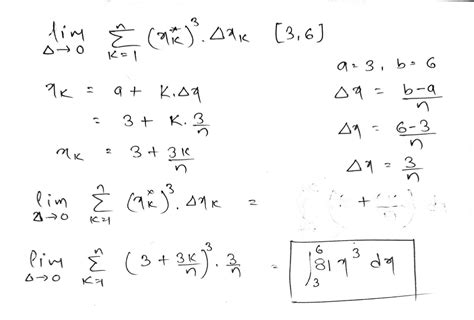 lim Δ→0 Σ k=1 n (x*k)³ . Δxk [3,6]
a=3, b=6
xk = a + K.Δx
Δx = b-a/n
= 3 + K. 3/n
Δx = 6-3/n
xk = 3 + 3K/n
Δx = 3/n
lim Δ→0 Σ k=1 n (x*k)³ . Δxk =
lim Δ→0 Σ k=1 n (3 + 3k/n)³ . 3/n = ∫₃⁶ 81 x³ dx